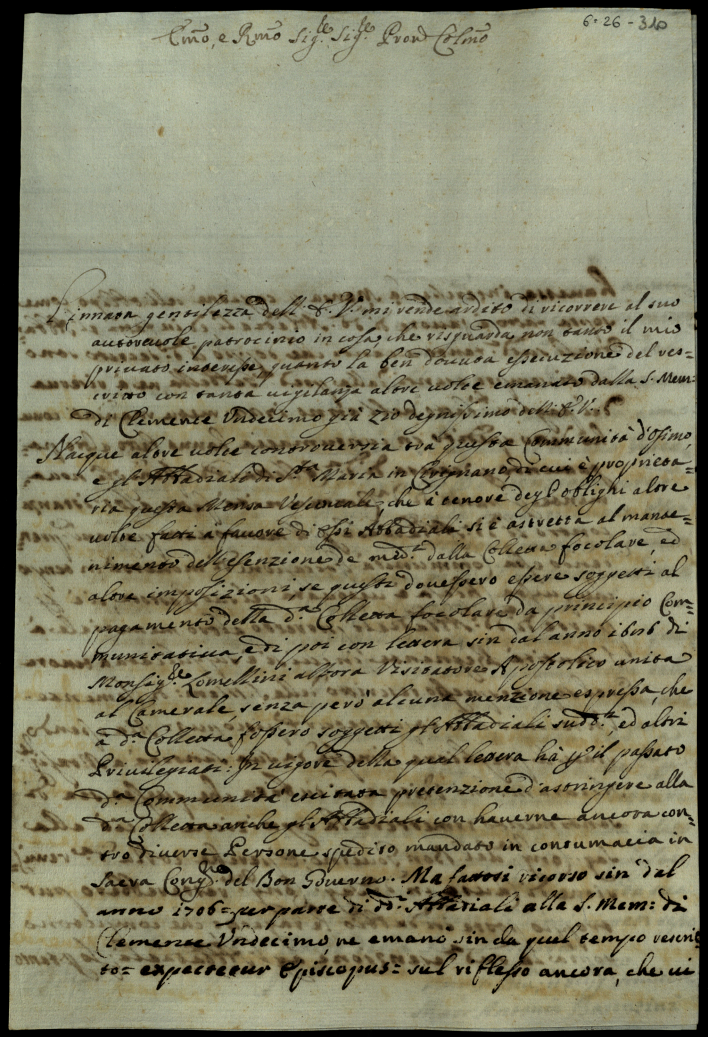 6-26-310
Em̃o, e Rm̃o Sig.re Sig.re Pron Colm̃o
L'innata gentilezza dell'E.V. mi rende ardito di ricorrere al suo
autorevole patrocinio in cosa, che risguarda non tanto il mio
privato interesse, quanto la ben dovuta essecuzione del res=
critto con tanta vigilanza altre volte emanato dalla S. Mem:
di Clemente Undecimo già zio degnissimo dell'E.V.
Nacque altre volte controversia trà questa Communità d'Osimo,
e gl'Abbadiali di S.ta Maria in
ria questa Mensa Vescovale, che à tenore degl'oblighi altre
volte fatti à favore di essi Abbadiali si è astretta al mante=
nimento dell'esenzione de med.i dalla Colletta focolare, ed
altre imposizioni, se questi dovessero essere soggetti al
pagamento della d.a Colletta focolare da principio Com=
munitativa, e di poi con lettera sin dal anno 1606 di
Monsig.re Lomellini all'ora Visitatore Apostolico unita
al Camerale, senza però alcuna menzione espressa, che
à d.a Colletta fossero soggetti gl'Abbadiali sudd.i, ed altri
Privilegiati. In vigore della qual lettera hà p il passato
d.a Communità eccitata pretenzione d'astringere alla
d.a Colletta anche gl'Abbadiali con haverne ancora con=
tro diverse Persone spedito mandato in contumacia in
Sacra Cong.e del Bon Governo. Ma fattosi ricorso sin dal
anno 1706 per parte di d.i Abbadiali alla S. Mem: di
Clemente Undecimo, ne emanò sin da quel tempo rescrit=
to= expectetur Episcopus= sul riflesso ancora, che vi